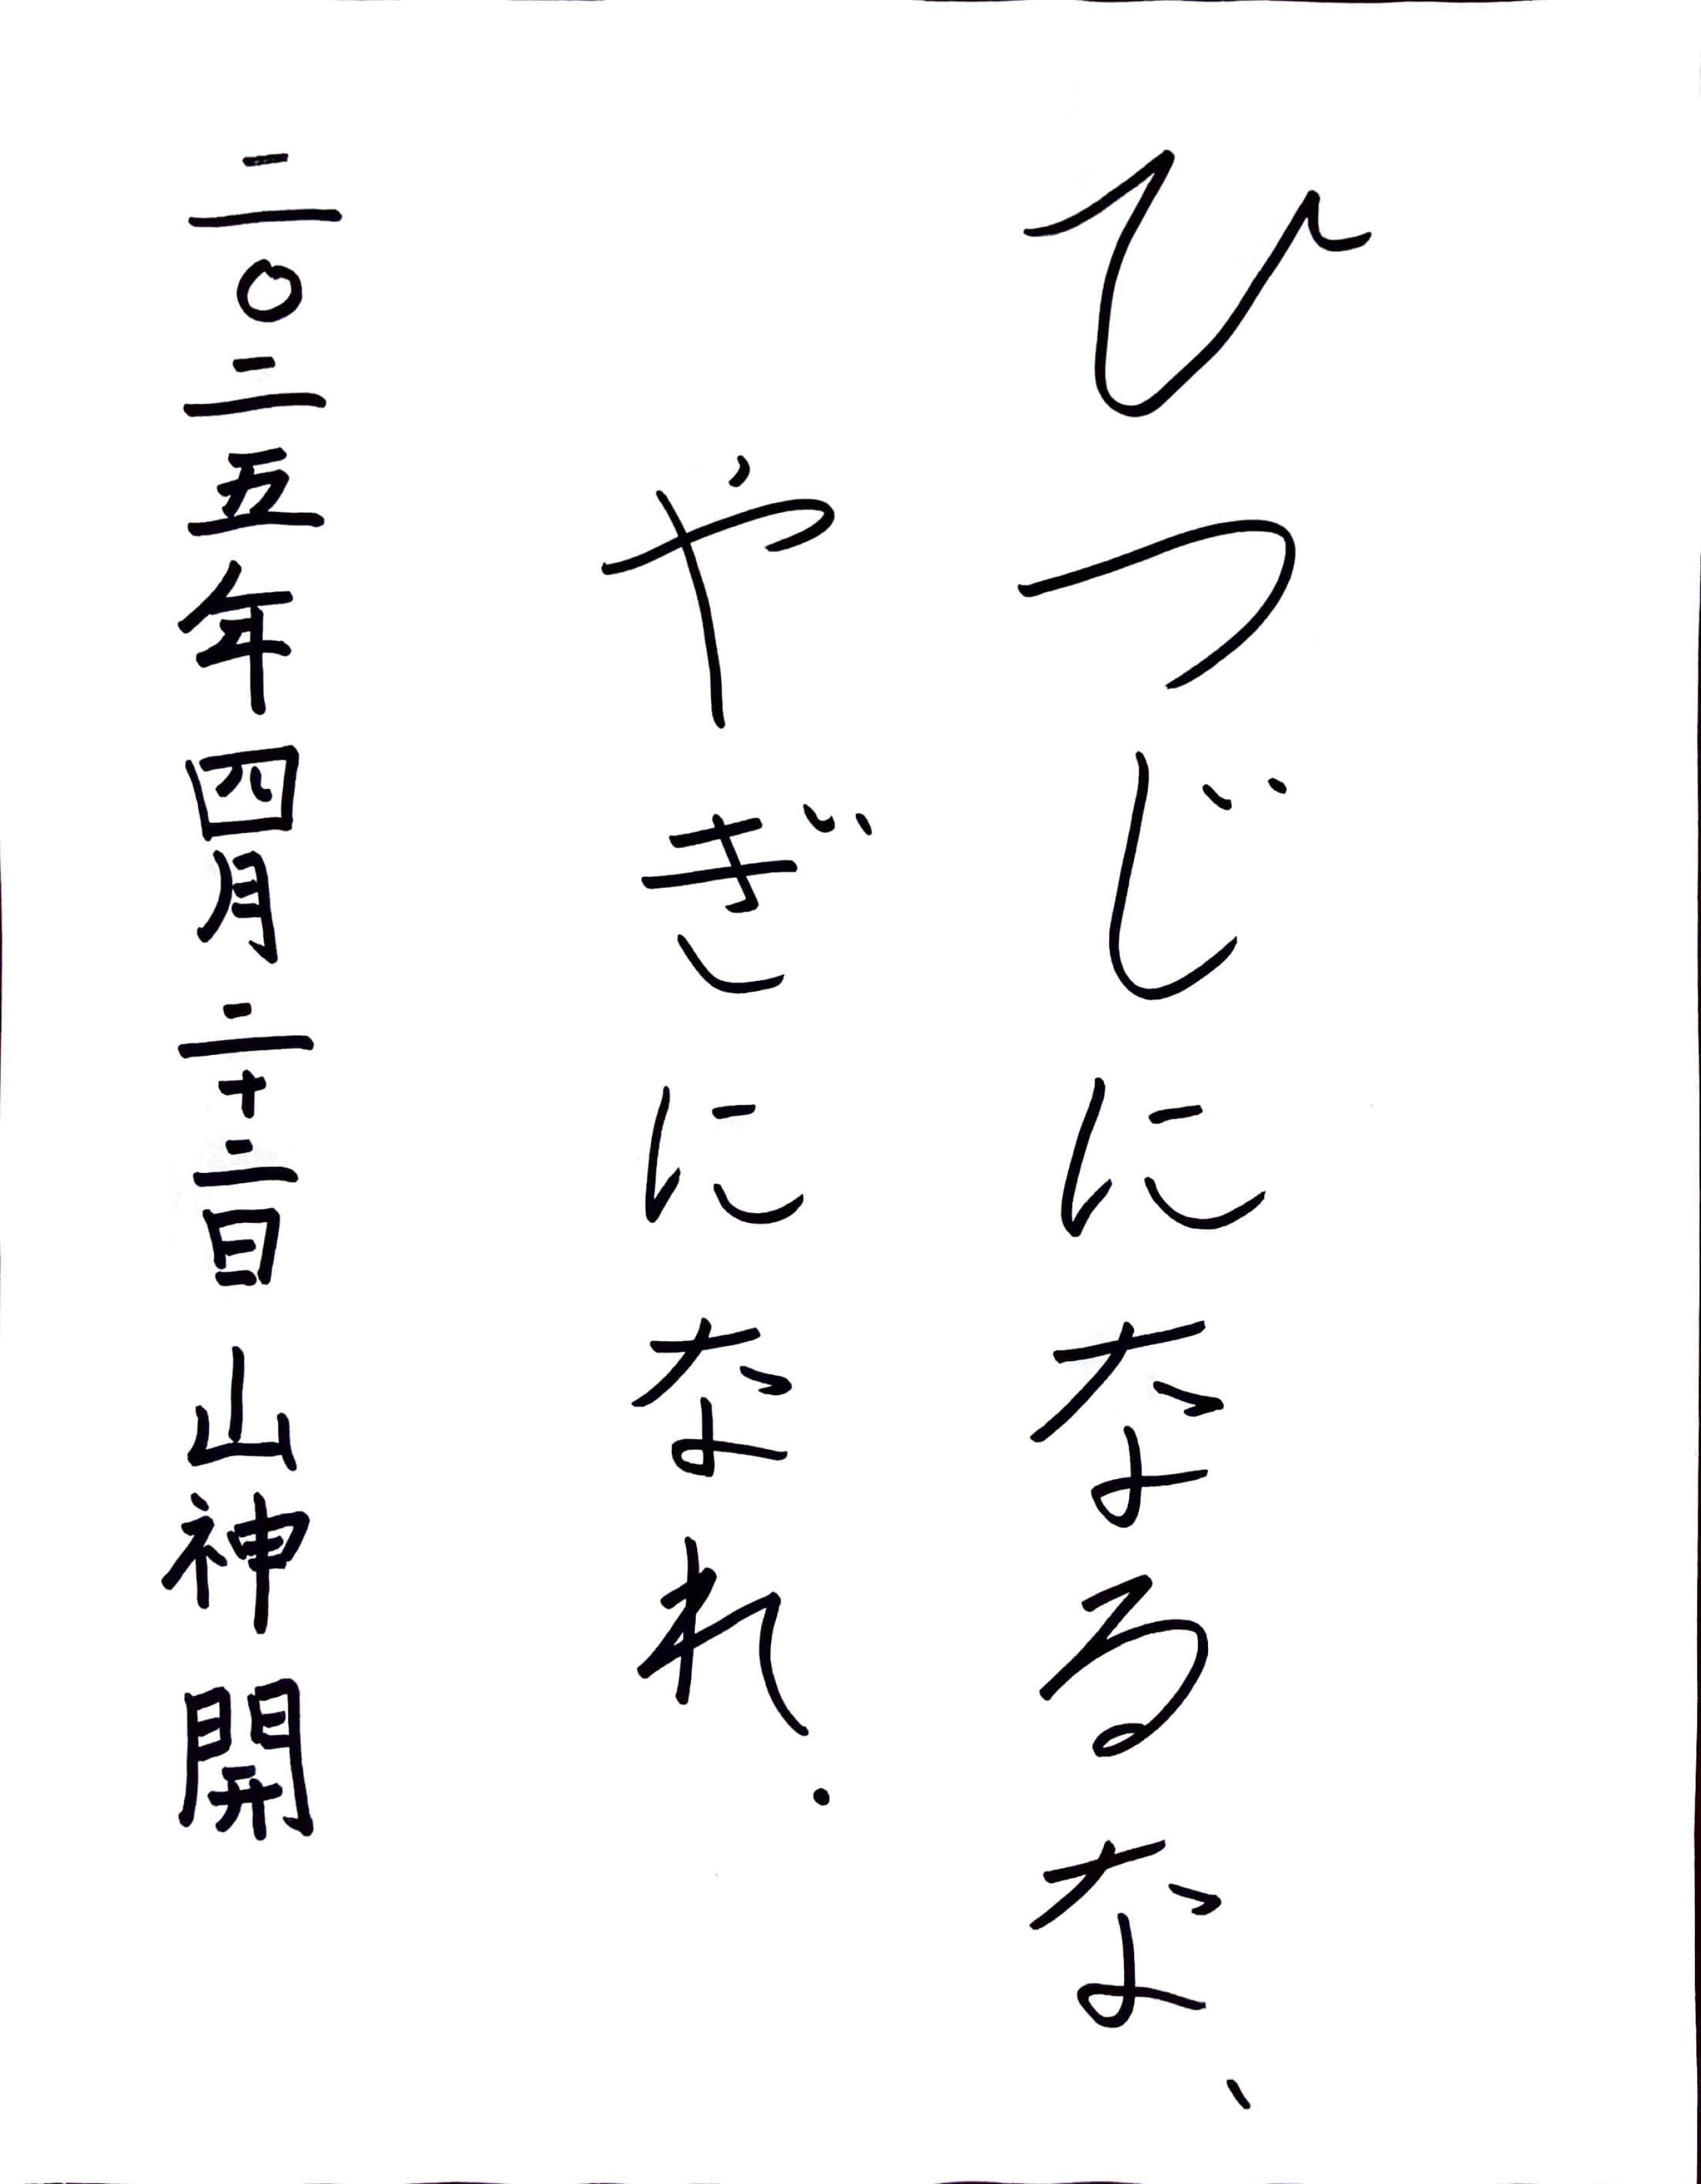 ひつじになるな、
やぎになれ.
二〇二五年四月二十二日 山神開